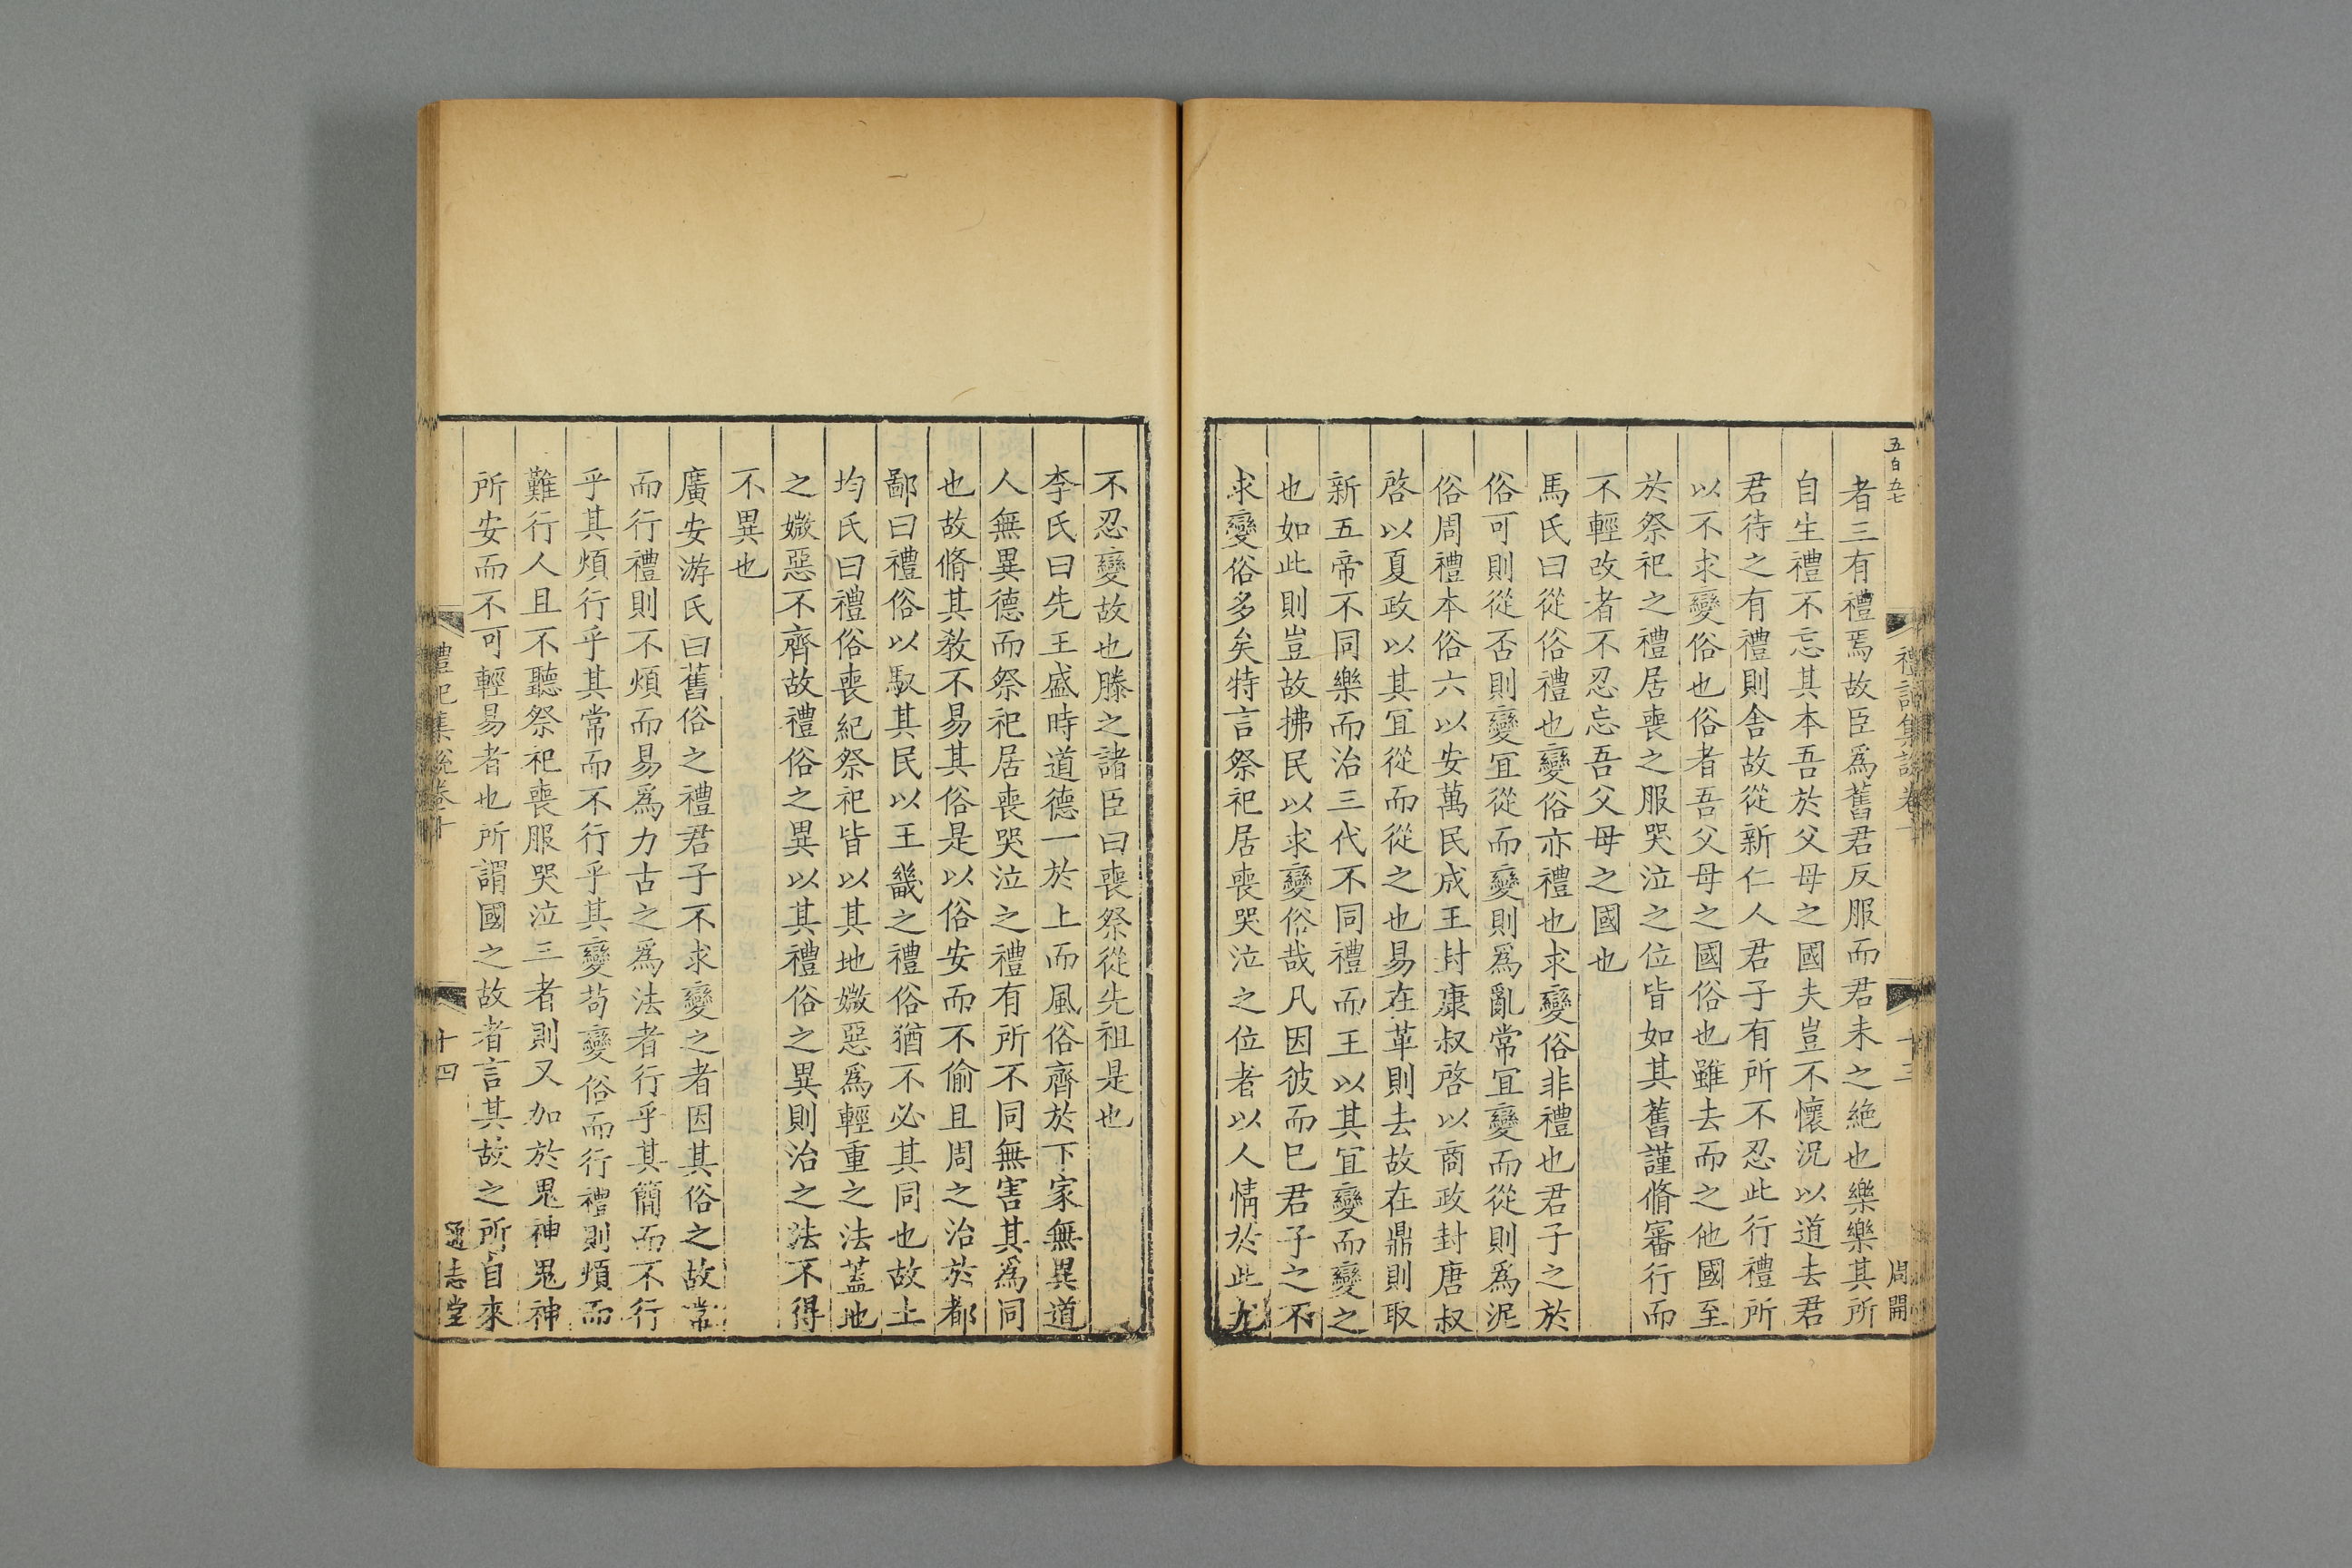 五百五七
禮記集說卷十
十三
周開
者三有禮焉故臣爲舊君反服而君未之絶也樂樂其所
自生禮不忘其本吾於父母之國夫豈不懷况以道去君
君待之有禮則舍故從新仁人君子有所不忍此行禮所
以不求變俗也俗者吾父母之國俗也雖去而之他國至
於祭祀之禮居喪之服哭泣之位皆如其舊謹脩審行而
不輕改者不忍忘吾父母之國也
馬氏曰從俗禮也變俗亦禮也求變俗非禮也君子之於
俗可則從否則變宜從而變則爲亂常宜變而從則爲泥
俗周禮本俗六以安萬民成王封康叔啓以商政封唐叔
啓以夏政以其宜從而從之也易在革則去故在鼎則取
新五帝不同樂而治三代不同禮而王以其宜變而變之
也如此則豈故拂民以求變俗哉凡因彼而已君子之不
求變俗多矣特言祭祀居喪哭泣之位者以人情於此尤
不忍變故也滕之諸臣曰喪祭從先祖是也
李氏曰先王盛時道德一於上而風俗齊於下家無異道
人無異德而祭祀居喪哭泣之禮有所不同無害其爲同
也故脩其敎不易其俗是以俗安而不偷且周之治於都
鄙曰禮俗以馭其民以王畿之禮俗猶不必其同也故土
均氏曰禮俗喪紀祭祀皆以其地媺惡爲輕重之法蓋地
之媺惡不齊故禮俗之異以其禮俗之異則治之法不得
不異也
廣安游氏曰舊俗之禮君子不求變之者因其俗之故常
而行禮則不煩而易爲力古之爲法者行乎其簡而不行
乎其煩行乎其常而不行乎其變苟變俗而行禮則煩而
難行人且不聽祭祀喪服哭泣三者則又加於鬼神鬼神
所安而不可輕易者也所謂國之故者言其故之所自來
禮記集說卷十
十四
通志堂